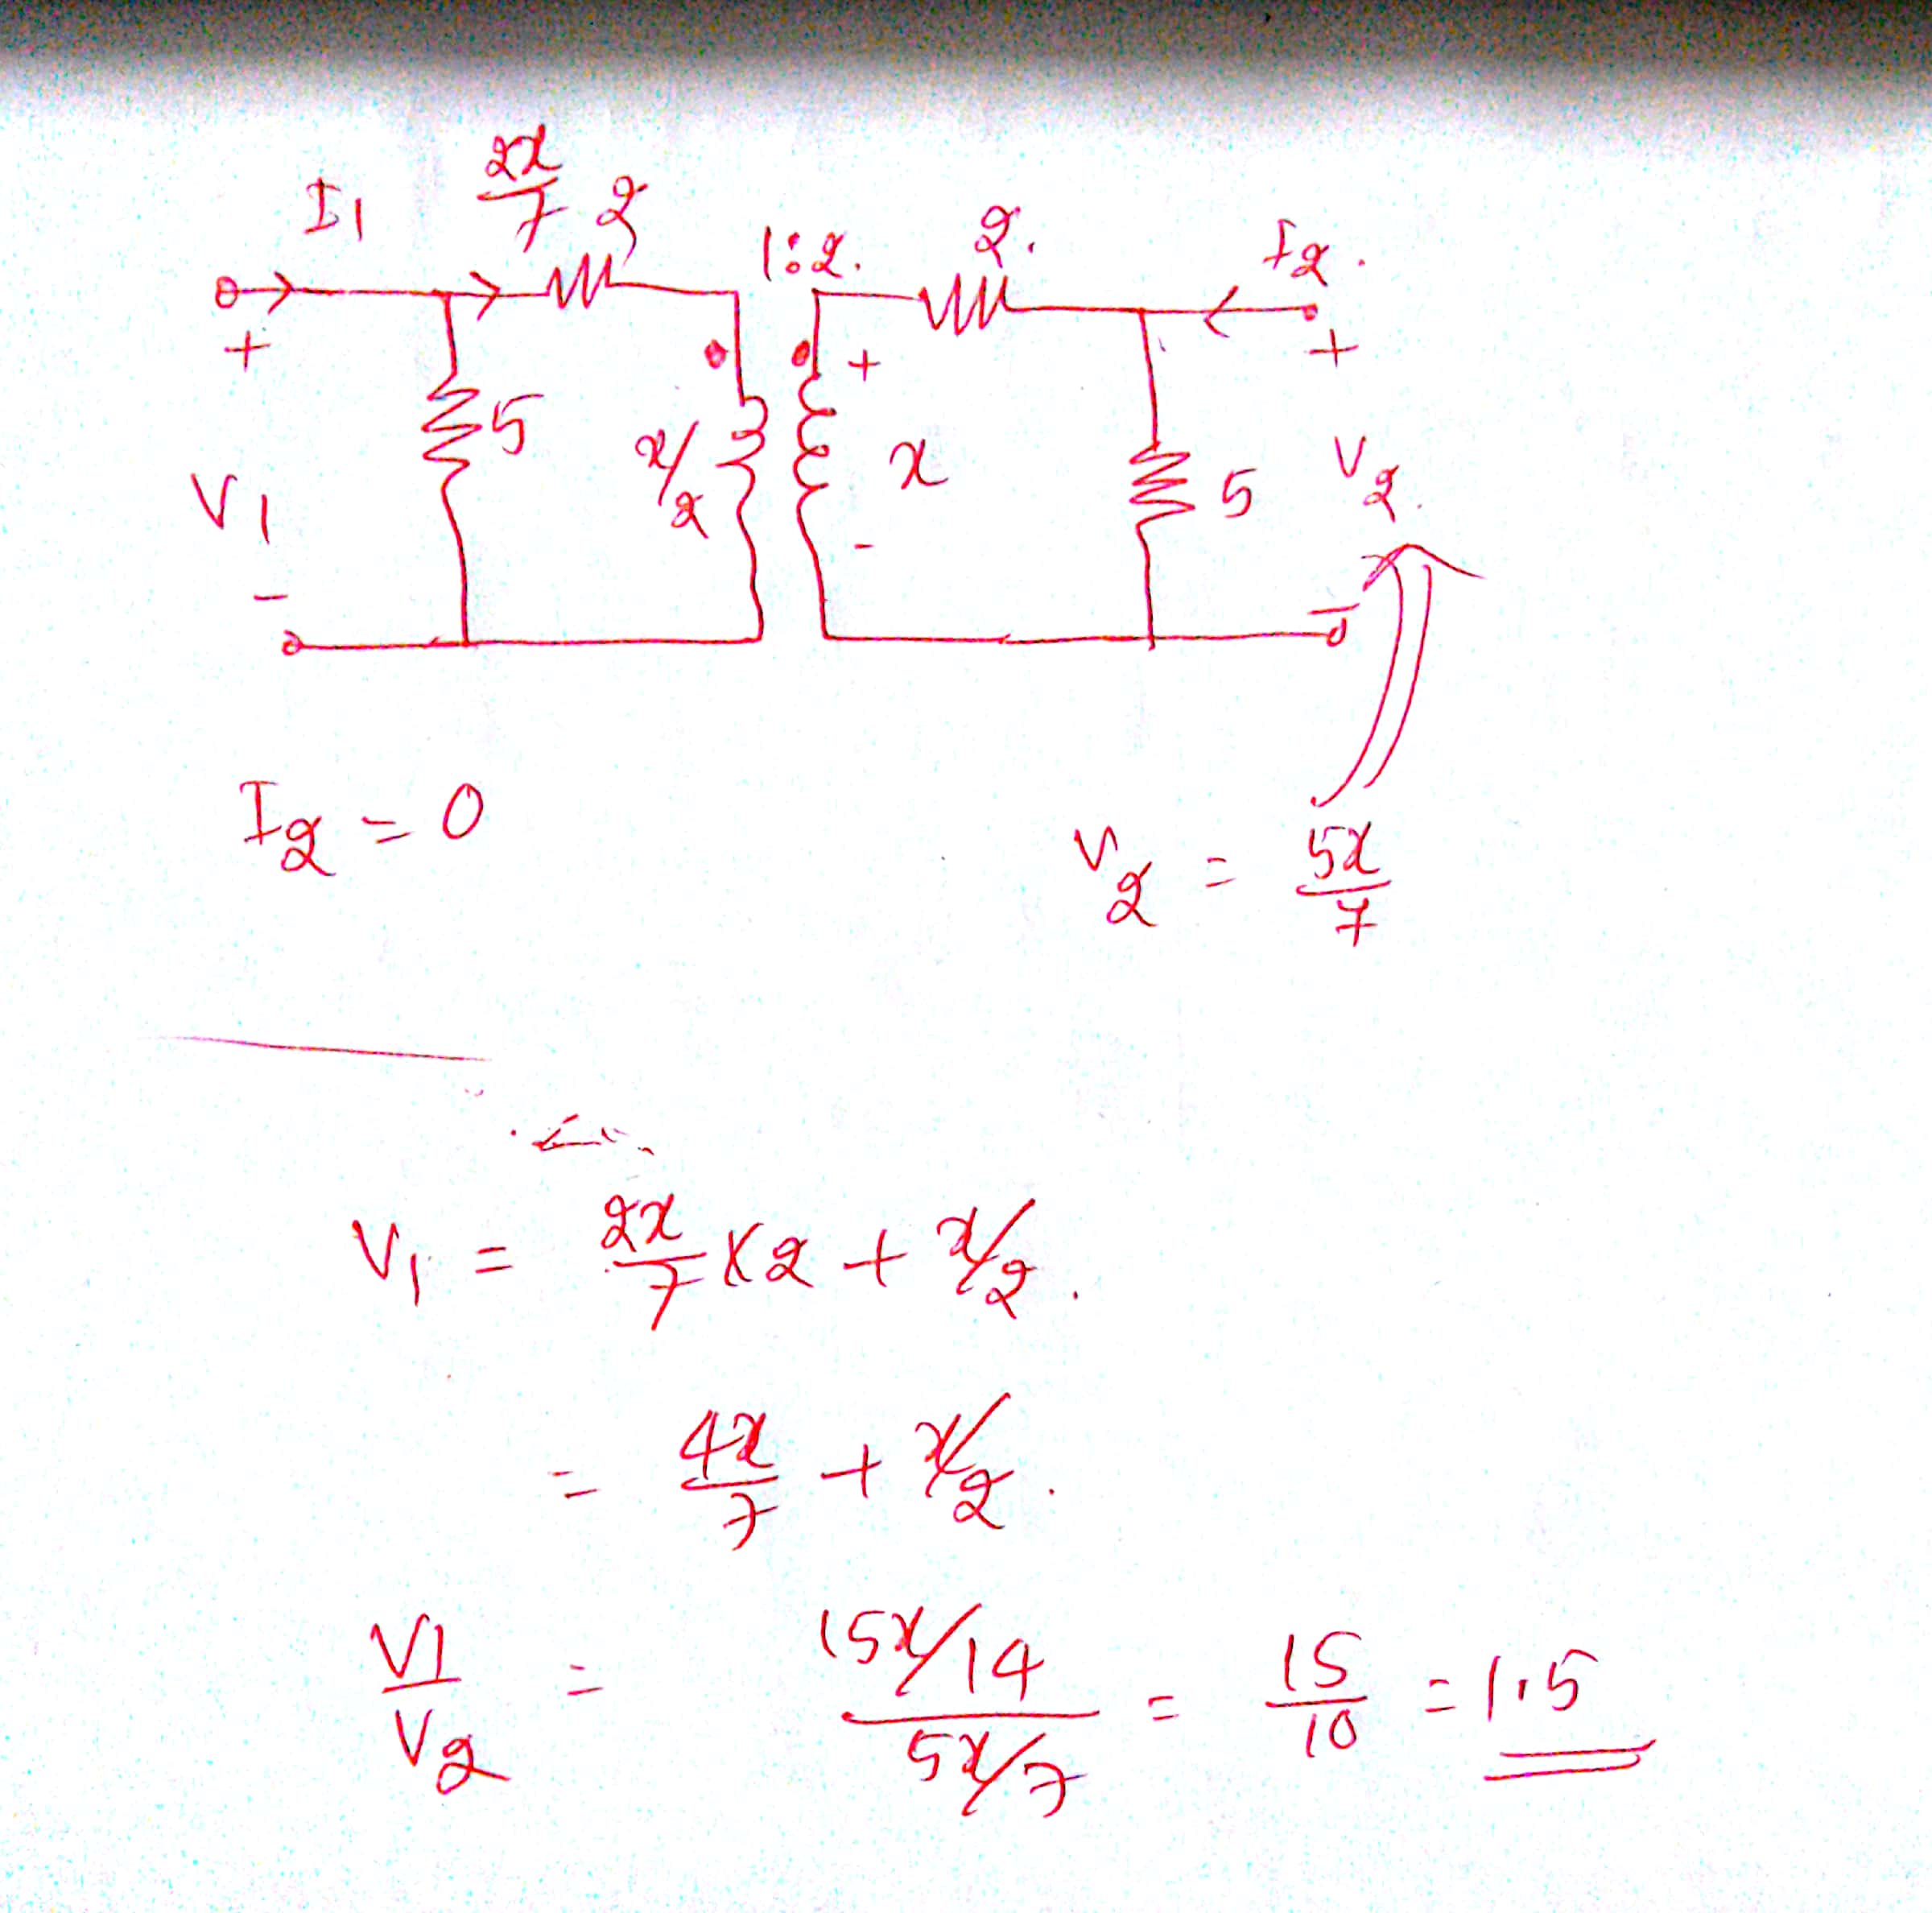 I1 2x/7 2 1:2. 2. I2.
+ + +
5 x/2 x 5 V2.
V1
- - -
I2 = 0 V2 = 5x/7
V1 = 2x/7 x 2 + x/2.
= 4x/7 + x/2.
V1/V2 = (15x/14)/(5x/7) = 15/10 = 1.5